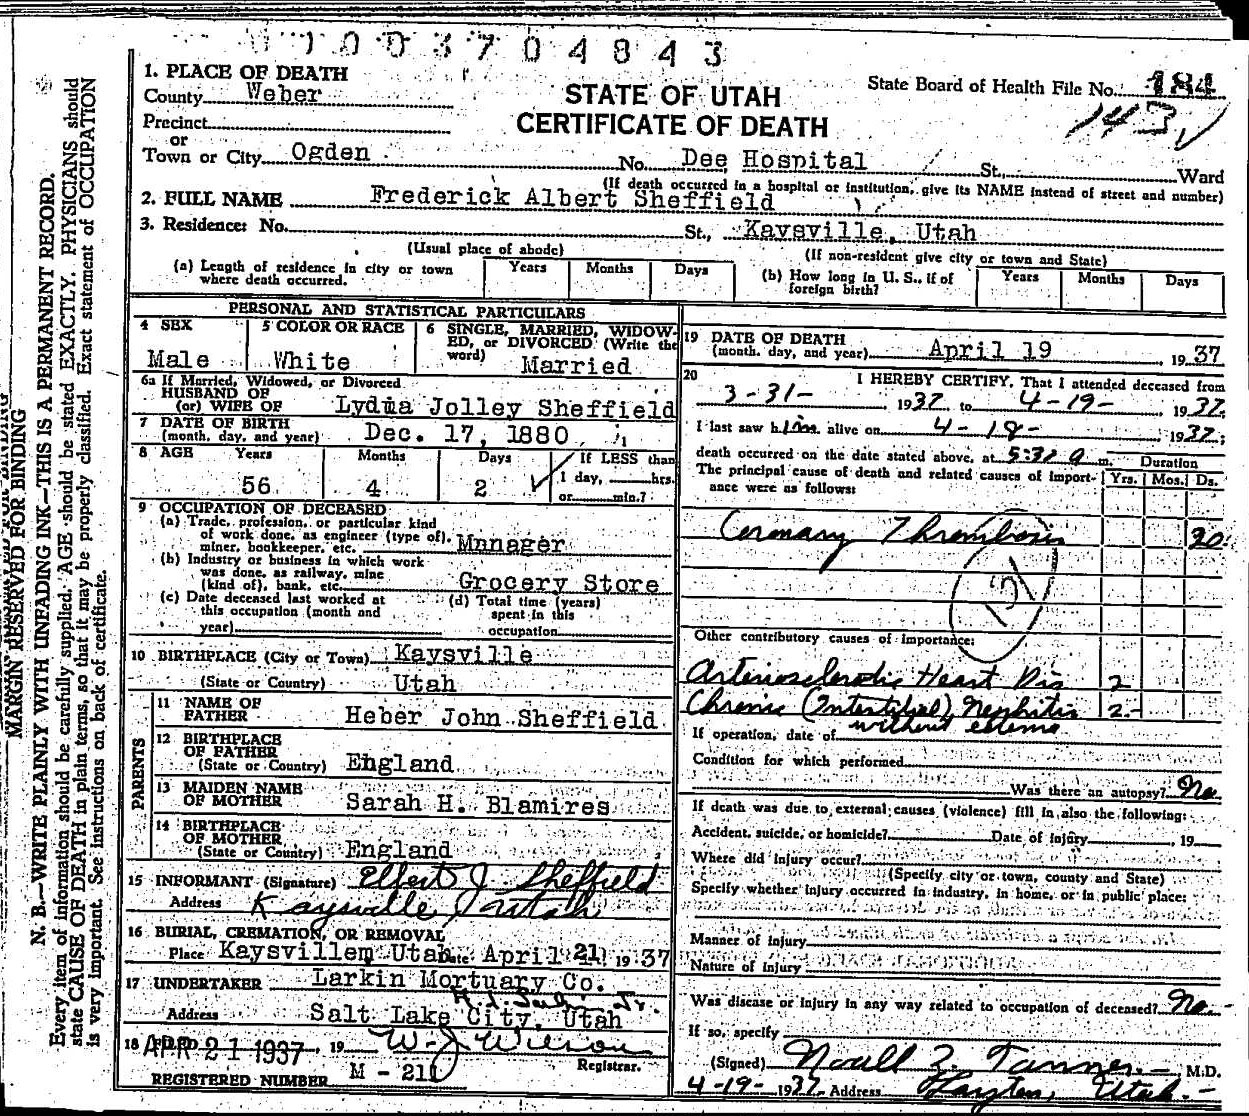 1003704843
1. PLACE OF DEATH
County Weber
Precinct
or
Town or City Ogden No. Dee Hospital St. Ward
STATE OF UTAH
CERTIFICATE OF DEATH
State Board of Health File No. 184
143
(If death occurred in a hospital or institution, give its NAME instead of street and number)
2. FULL NAME Frederick Albert Sheffield
3. Residence: No. St., Kaysville, Utah
(Usual place of abode) (If non-resident give city or town and State)
(a) Length of residence in city or town where death occurred. Years Months Days
(b) How long in U. S., if of foreign birth? Years Months Days
PERSONAL AND STATISTICAL PARTICULARS
4 SEX
Male
5 COLOR OR RACE
White
6 SINGLE, MARRIED, WIDOW-
ED, or DIVORCED (Write the
word) Married
6a If Married, Widowed, or Divorced
HUSBAND OF
(or) WIFE OF Lydia Jolley Sheffield
7 DATE OF BIRTH
(month, day, and year) Dec. 17, 1880
8 AGE Years Months Days If LESS than
56 4 2 1 day, hrs.
or min.?
9 OCCUPATION OF DECEASED
(a) Trade, profession, or particular kind
of work done, as engineer (type of),
miner, bookkeeper, etc. Mnnager
(b) Industry or business in which work
was done, as railway, mine
(kind of), bank, etc. Grocery Store
(c) Date deceased last worked at
this occupation (month and
year)
(d) Total time (years)
spent in this
occupation
10 BIRTHPLACE (City or Town) Kaysville
(State or Country) Utah
PARENTS
11 NAME OF
FATHER Heber John Sheffield
12 BIRTHPLACE
OF FATHER
(State or Country) England
13 MAIDEN NAME
OF MOTHER Sarah H. Blamires
14 BIRTHPLACE
OF MOTHER
(State or Country) England
15 INFORMANT (Signature) Elbert J Sheffield
Address Kaysville, Utah
16 BURIAL, CREMATION, OR REMOVAL
Place Kaysvillem Utah Date April 21 1937
17 UNDERTAKER Larkin Mortuary Co.
Address Salt Lake City, Utah
18 FILED APR 21 1937, 19 W. J. Wilson
Registrar.
REGISTERED NUMBER M - 211
19 DATE OF DEATH
(month, day, and year) April 19, 1937
20 I HEREBY CERTIFY, That I attended deceased from
3-31-, 1937 to 4-19-, 1937;
I last saw him alive on 4-18- 1937;
death occurred on the date stated above, at 5:32 a m. Duration
The principal cause of death and related causes of import-
ance were as follows: Yrs. Mos. Ds.
Coronary Thrombosis 20
Other contributory causes of importance:
Arteriosclerotic Heart Dis 2
Chronic (Interstitial) Nephritis 2-
without edema
If operation, date of
Condition for which performed
Was there an autopsy? No
If death was due to external causes (violence) fill in also the following:
Accident, suicide, or homicide? Date of injury, 19
Where did injury occur?
(Specify city or town, county and State)
Specify whether injury occurred in industry, in home, or in public place:
Manner of injury
Nature of injury
Was disease or injury in any way related to occupation of deceased? No.
If so, specify
(Signed) Noall Z. Tanner M.D.
4-19- 1937 Address Layton, Utah.
MARGIN RESERVED FOR BINDING
N. B.—WRITE PLAINLY WITH UNFADING INK—THIS IS A PERMANENT RECORD.
Every item of information should be carefully supplied. AGE should be stated EXACTLY. PHYSICIANS should
state CAUSE OF DEATH in plain terms, so that it may be properly classified. Exact statement of OCCUPATION
is very important. See instructions on back of certificate.